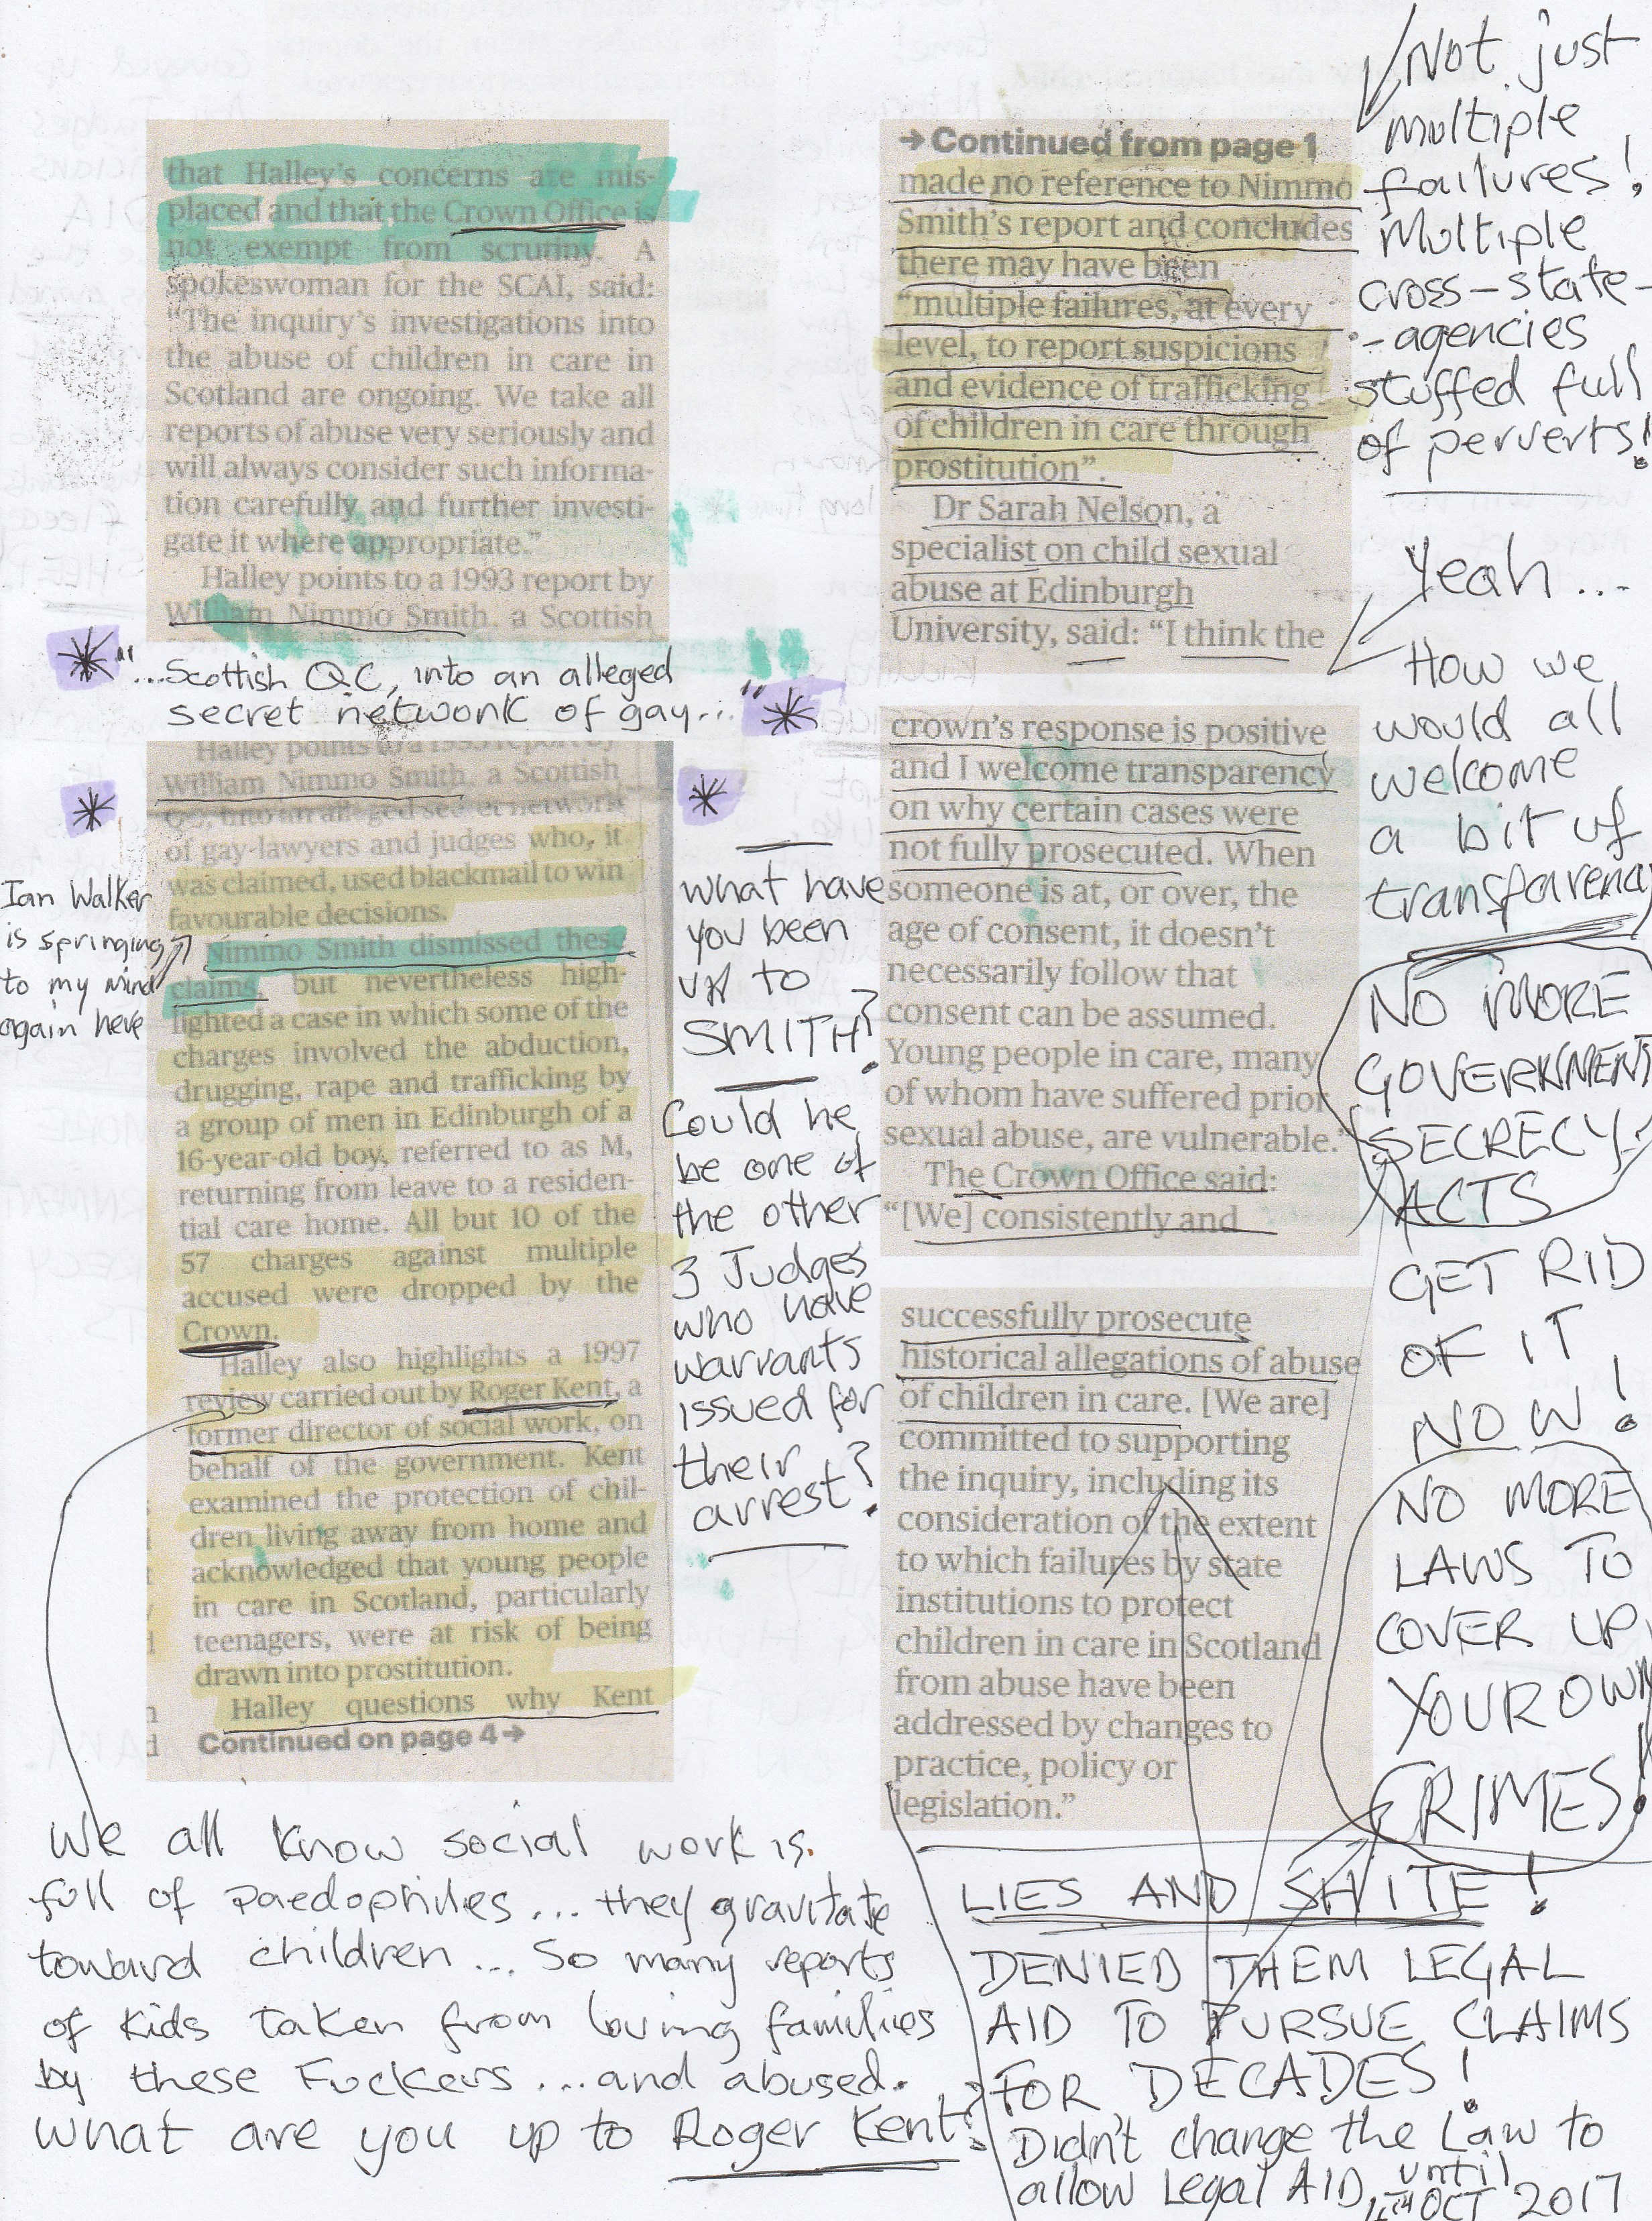 that Halley's concerns are mis-
placed and that the Crown Office is
not exempt from scrutiny. A
spokeswoman for the SCAI, said:
"The inquiry's investigations into
the abuse of children in care in
Scotland are ongoing. We take all
reports of abuse very seriously and
will always consider such informa-
tion carefully and further investi-
gate it where appropriate."
Halley points to a 1993 report by
William Nimmo Smith, a Scottish
"...Scottish QC, into an alleged
secret network of gay..."
Halley points to a 1993 report by
William Nimmo Smith, a Scottish
QC, into an alleged secret network
of gay-lawyers and judges who, it
was claimed, used blackmail to win
favourable decisions.
Nimmo Smith dismissed these
claims, but nevertheless high-
lighted a case in which some of the
charges involved the abduction,
drugging, rape and trafficking by
a group of men in Edinburgh of a
16-year-old boy, referred to as M,
returning from leave to a residen-
tial care home. All but 10 of the
57 charges against multiple
accused were dropped by the
Crown.
Halley also highlights a 1997
review carried out by Roger Kent, a
former director of social work, on
behalf of the government. Kent
examined the protection of chil-
dren living away from home and
acknowledged that young people
in care in Scotland, particularly
teenagers, were at risk of being
drawn into prostitution.
Halley questions why Kent
Continued on page 4→
Ian Walker
is springing
to my mind
again here
What have
you been
up to
SMITH?
Could he
be one of
the other
3 Judges
who have
warrants
issued for
their
arrest?
We all know social work is
full of paedophiles... they gravitate
toward children... So many reports
of kids taken from loving families
by these Fuckers...and abused.
What are you up to Roger Kent?
→ Continued from page 1
made no reference to Nimmo
Smith's report and concludes
there may have been
"multiple failures, at every
level, to report suspicions
and evidence of trafficking
of children in care through
prostitution".
Dr Sarah Nelson, a
specialist on child sexual
abuse at Edinburgh
University, said: "I think the
crown's response is positive
and I welcome transparency
on why certain cases were
not fully prosecuted. When
someone is at, or over, the
age of consent, it doesn't
necessarily follow that
consent can be assumed.
Young people in care, many
of whom have suffered prior
sexual abuse, are vulnerable."
The Crown Office said:
"[We] consistently and
successfully prosecute
historical allegations of abuse
of children in care. [We are]
committed to supporting
the inquiry, including its
consideration of the extent
to which failures by state
institutions to protect
children in care in Scotland
from abuse have been
addressed by changes to
practice, policy or
legislation."
Not just
multiple
failures!
Multiple
cross-state-
-agencies
stuffed full
of perverts!
Yeah...
How we
would all
welcome
a bit of
transparency
NO MORE
GOVERNMENT
SECRECY
ACTS
GET RID
OF IT
NOW!
NO MORE
LAWS TO
COVER UP
YOUR OWN
CRIMES!
LIES AND SHITE!
DENIED THEM LEGAL
AID TO PURSUE CLAIMS
FOR DECADES!
Didn't change the Law to
allow Legal AID until
OCT 2017